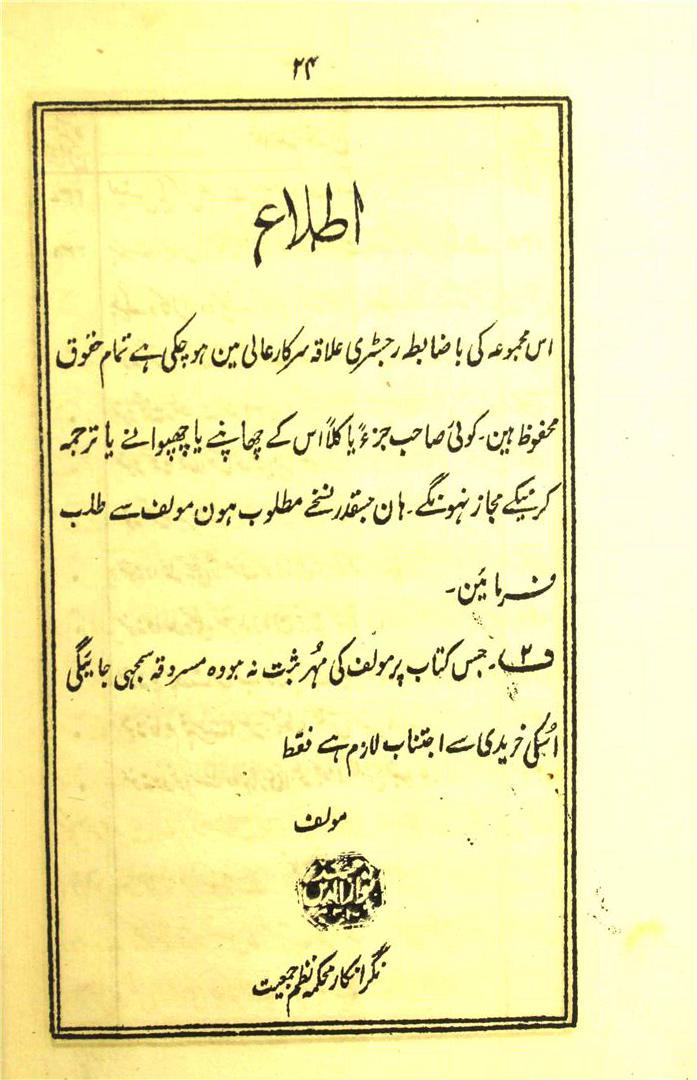 ۲۴
اطلاع
اس مجموعہ کی باضابطہ رجسٹری علاقہ سرکار عالی مین ہو چکی ہے تمام حقوق
محفوظ ہین۔ کوئی صاحب جزءً یا کلاً اس کے چھاپنے یا چھپوانے یا ترجمہ
کرنیکے مجاز نہونگے۔ ہان جسقدر نسخے مطلوب ہون مولف سے طلب
فرمائین۔
ف۲۔ جس کتاب پر مولف کی مُہر ثبت نہ ہو وہ مسروقہ سمجھی جائیگی
اُسکی خریدی سے اجتناب لازم ہے فقط
مولف
نگرانکار محکمہ نظم جمعیت